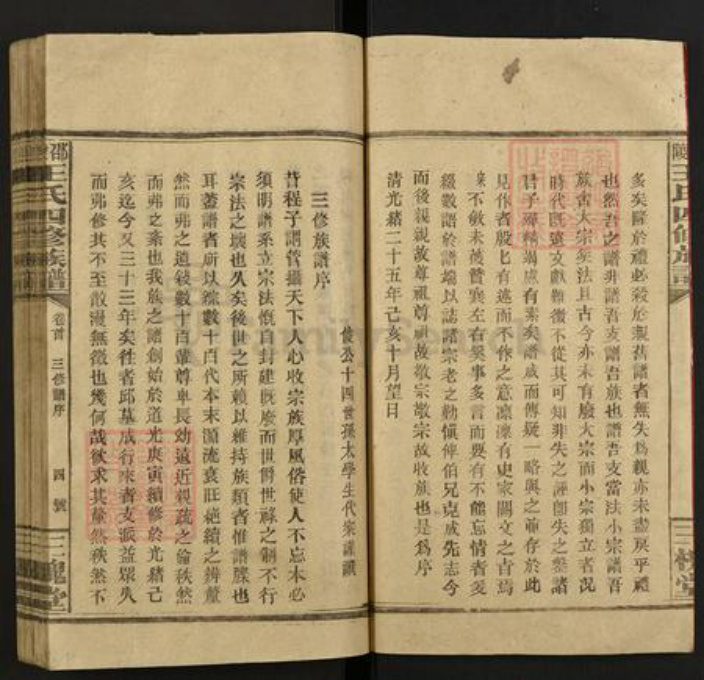 陵王氏四修族譜
三槐堂
多矣隆於禮必殺於親舊譜者無失為親亦未盡戾乎禮
也然吾之譜非譜吾支譜吾族也譜吾支當法小宗譜吾
族舍大宗矣法且古今亦未有廢大宗而小宗獨立者況
時代既遠文獻難徵不從其可知非失之誣即失之鑿諸
君子殫精竭慮有素矣譜成而傳疑一略與之並存於此
見作者殷比有述而不作之意凜凜有史家闕文之古焉
不敏未獲贊襄左右奚事多言而要有不能忘情者爰
綴數語於譜端以誌諸宗老之勒愼俾伯兄克成先志今
而後親親故尊祖尊祖故敬宗敬宗故收族也是為序
清光緒二十五年己亥十月望日
三修族譜序
俊公十四世孫太學生代宗謹譔
昔程子謂管攝天下人心收宗族厚風俗使人不忘本必
須明譜系立宗法慨自封建既廢而世爵世祿之制不行
宗法之壞也久矣後世之所賴以維持族類者惟譜牒也
耳蓋譜者所以綜數十百代本末源流衰旺絕續之辨釐
然而弗之遺錢數十百輩尊卑長幼遠近親疏之倫秩然
而弗之紊也我族之譜創始於道光庚寅續修於光緒己
亥迄今又三十三年矣徃者邱墓成行來者支派益眾失
而弗修其不至散漫無徵也幾何哉欲求其釐然秩然不
邵王氏四修族譜
卷首
三修譜序
四號
三槐堂